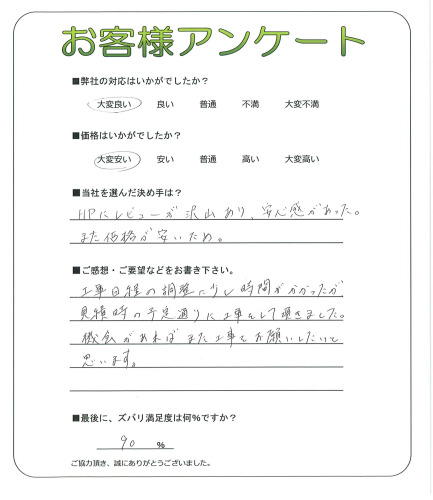 お客様アンケート
■弊社の対応はいかがでしたか？
大変良い 良い 普通 不満 大変不満
■価格はいかがでしたか？
大変安い 安い 普通 高い 大変高い
■当社を選んだ決め手は？
HPにレビューが沢山あり、安心感があった。
また価格が安いため。
■ご感想・ご要望などをお書き下さい。
工事日程の調整に少し時間がかかったが、
見積時の予定通りに工事をして頂きました。
機会があればまた工事をお願いしたいと
思います。
■最後に、ズバリ満足度は何％ですか？
90 ％
ご協力頂き、誠にありがとうございました。